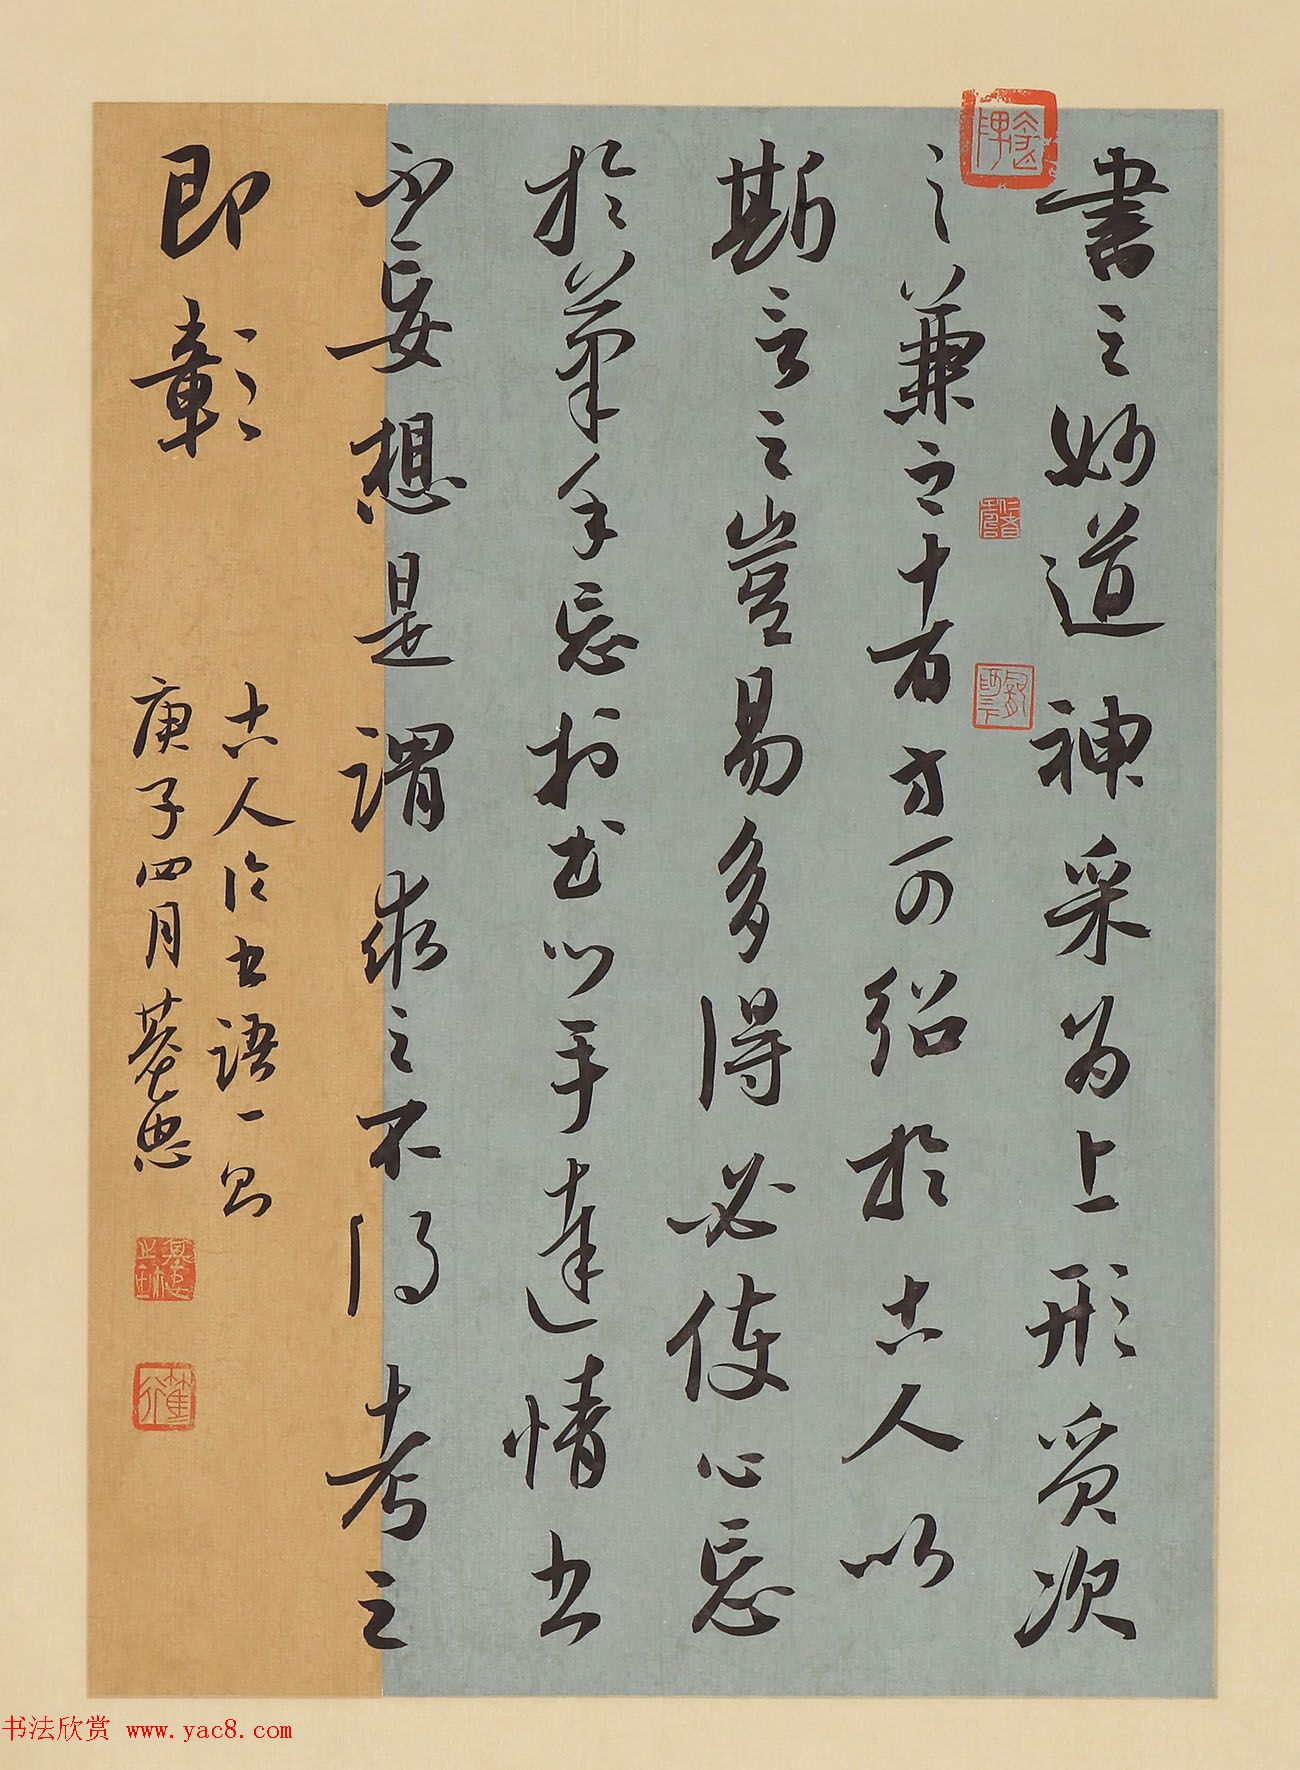 書之妙道神采为上形質次
之兼之者方可紹於古人以
斯言之豈易多得必使心忘
於筆手忘於书心手達情书
不妄想是謂求之不得考之
即彰
古人论书語一则
庚子四月
书法欣赏 www.yac8.com